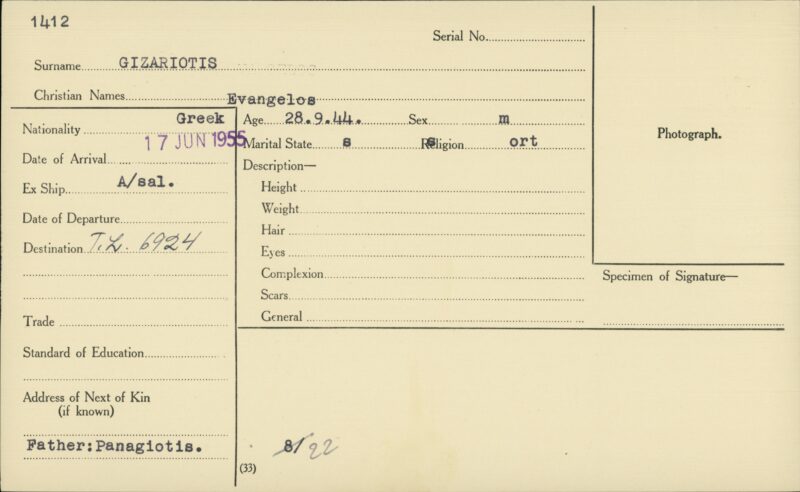 1412
Serial No.
Surname GIZARIOTIS
Christian Names Evangelos
Nationality Greek
17 JUN 1955
Date of Arrival
Ex Ship A/sal.
Date of Departure
Destination T.L. 6924
Trade
Standard of Education
Address of Next of Kin
(if known)
Father:Panagiotis.
Age 28.9.44. Sex m
Marital State s Religion ort
Description—
Height
Weight
Hair
Eyes
Complexion
Scars
General
8/22
(33)
Photograph.
Specimen of Signature—